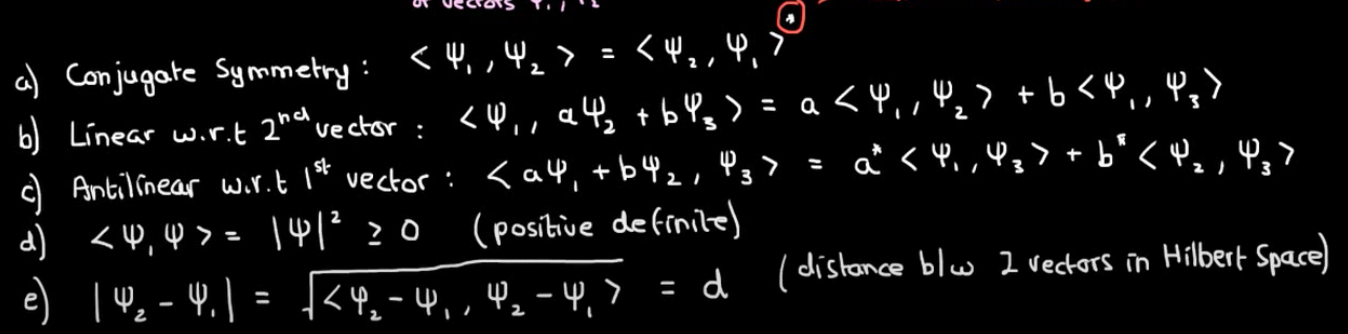 of vectors Ψ₁, Ψ₂
a) Conjugate Symmetry : < Ψ₁, Ψ₂ > = < Ψ₂, Ψ₁ >*
b) Linear w.r.t 2nd vector : < Ψ₁, aΨ₂ + bΨ₃ > = a < Ψ₁, Ψ₂ > + b < Ψ₁, Ψ₃ >
c) Antilinear w.r.t 1st vector : < aΨ₁ + bΨ₂, Ψ₃ > = a* < Ψ₁, Ψ₃ > + b* < Ψ₂, Ψ₃ >
d) < Ψ, Ψ > = |Ψ|² ≥ 0 (positive definite)
e) | Ψ₂ - Ψ₁ | = √< Ψ₂ - Ψ₁, Ψ₂ - Ψ₁ > = d (distance b/w 2 vectors in Hilbert Space)